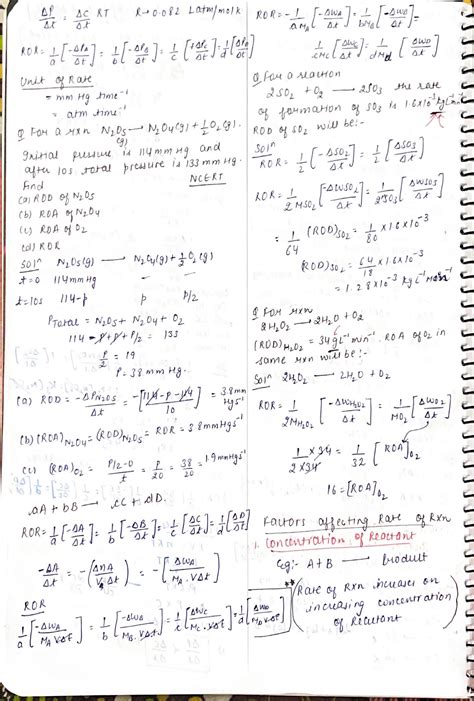 ΔP/Δt = ΔC/Δt RT R→0.082 Latm/mol/k
ROR = 1/a [-ΔPA/Δt] = 1/b [-ΔPB/Δt] = 1/c [+ΔPC/Δt] = 1/d [ΔPD/Δt]
Unit of Rate
= mmHg time⁻¹
= atm time⁻¹
Q For a rxn N2O5(g) → N2O4(g) + 1/2 O2(g).
Initial pressure is 114mmHg and
after 10s total pressure is 133mmHg.
Find NCERT
(a) ROD of N2O5
(b) ROA of N2O4
(c) ROA of O2
(d) ROR
Solⁿ N2O5(g) → N2O4(g) + 1/2 O2(g)
t=0 114mmHg - -
t=10s 114-p p/2
PTotal = N2O5 + N2O4 + O2
114 - p + p + P/2 = 133
P/2 = 19
P = 38 mm Hg.
(a) ROD = -ΔPN2O5/Δt = -[114-p-114/10] = 3.8mm Hgs⁻¹
(b) (ROA)N2O4 = (ROD)N2O5 = ROR = 3.8mmHgs⁻¹
(c) (ROA)O2 = P/2-0/Δt = P/20 = 38/20 = 1.9mmHgs⁻¹
aA + bB → cC + dD.
ROR = 1/a [-ΔA/Δt] = 1/b [-ΔB/Δt] = 1/c [ΔC/Δt] = 1/d [ΔD/Δt]
-ΔA/Δt = -(ΔnA/VΔt) = -[ΔWA/MA.VΔt]
ROR
1/a [-ΔWA/MA VΔt] = 1/b [-ΔWB/MB.VΔt] = 1/c [ΔWC/MC.VΔt] = 1/d [ΔWD/MD VΔt] **
ROR = -1/aMA [-ΔWA/Δt] = 1/bMB [-ΔWB/Δt] =
1/cMC [ΔWC/Δt] = 1/dMD [ΔWD/Δt]
Q For a reaction
2SO2 + O2 → 2SO3 the rate
of formation of SO3 is 1.6x10⁻³
ROD of SO2 will be:-
Solⁿ
ROR = 1/2 [-ΔSO2/Δt] = 1/2 [ΔSO3/Δt]
ROR = 1/2MSO2 [-ΔWSO2/Δt] = 1/2SO3 [ΔWSO3/Δt]
1/64 (ROD)SO2 = 1/80 x 1.6x10⁻³
(ROD)SO2 = 1.6x10⁻³
= 1.28x10⁻³
Q For rxn
2H2O2 → 2H2O + O2
(ROD)H2O2 = 34gL⁻¹min⁻¹. ROA of O2 in
same rxn will be:-
Solⁿ 2H2O2 → 2H2O + O2
ROR = 1/2MH2O2 [-ΔWH2O2/Δt] = 1/MO2 [ΔWO2/Δt]
1/2x34 x 34 = 1/32 [ROA]O2
16 = [ROA]O2
Factors affecting Rate of Rxn
1. Concentration of Reactant
Eg:- A+B → Product
(Rate of Rxn increases on
increasing concentration
of Reactant)